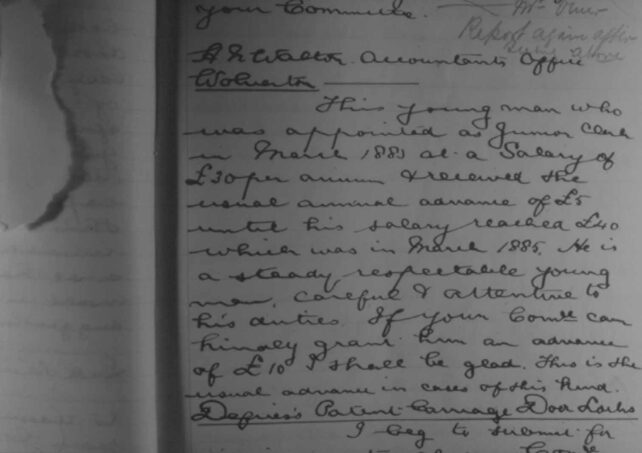 your Committee.
Mr Viner
Report again after
June above
A E Walton. Accountants Office
Wolverton
This young man who
was appointed as Junior Clerk
in March 1883 at a Salary of
£30 per annum & received the
usual annual advance of £5
until his salary reached £40
which was in March 1885. He is
a steady, respectable young
man, careful & attentive to
his duties. If your Comtee can
kindly grant him an advance
of £10 I shall be glad. This is the
usual advance in cases of this kind.
Defries's Patent Carriage Door Locks
I beg to submit for